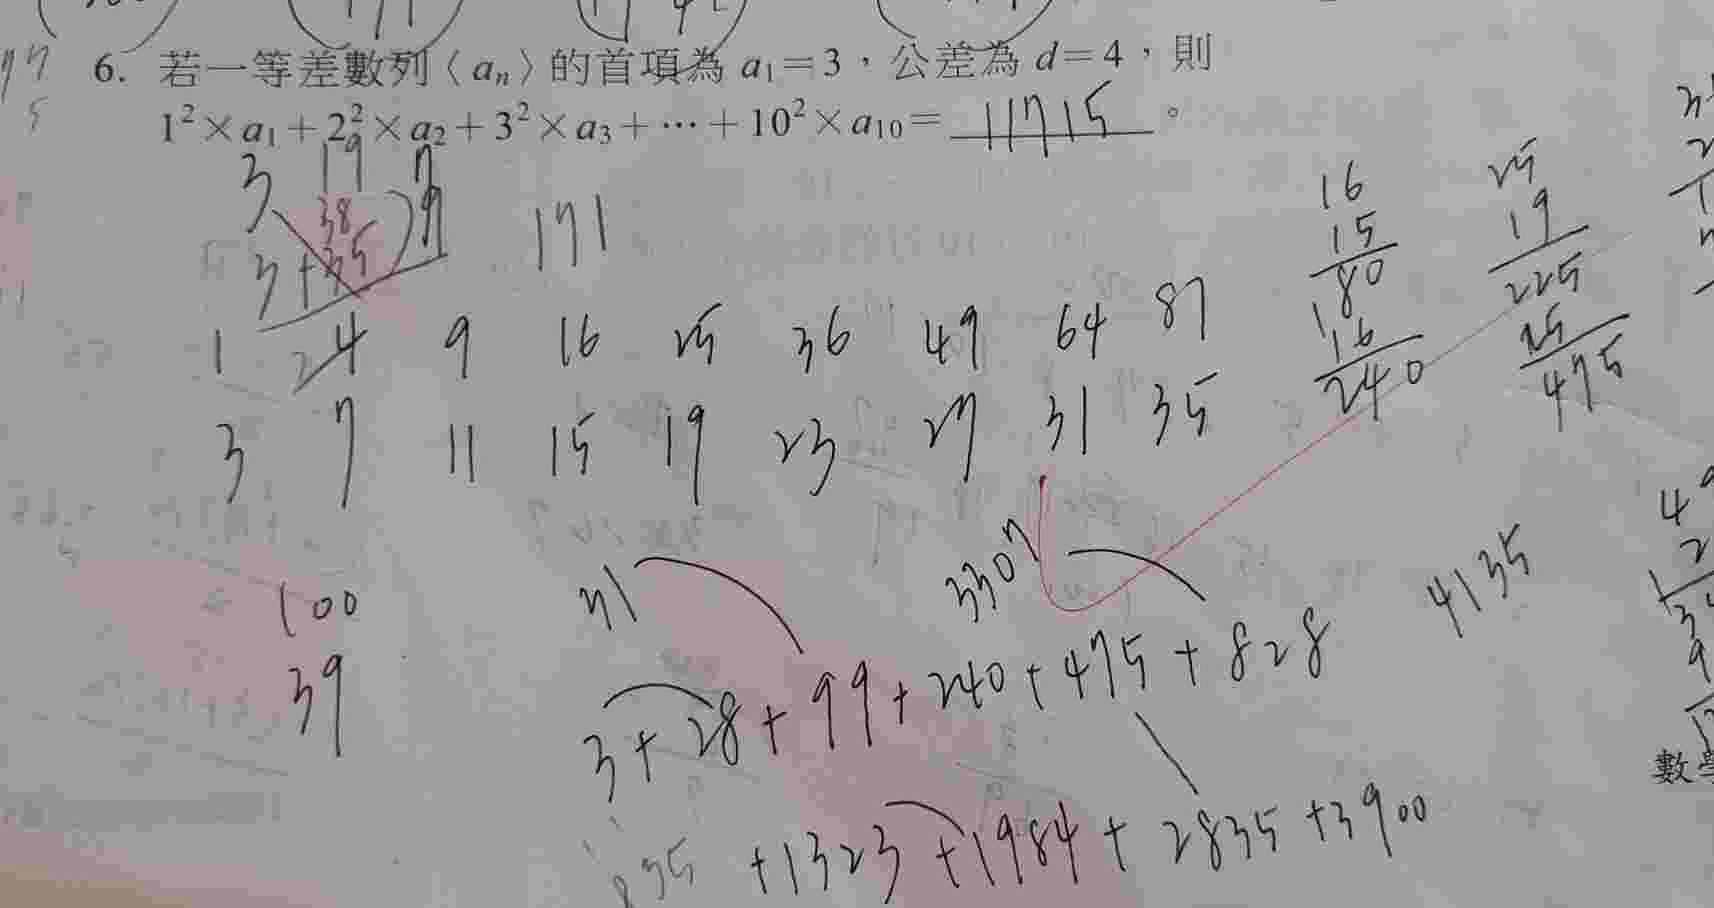 6. 若一等差數列〈an〉的首項為 a1=3，公差為 d=4，則
1²×a1+2²×a2+3²×a3+⋯+10²×a10= 11715 。
3 19 7
38
3+35
171
1 24 9 16 25 36 49 64 81
3 7 11 15 19 23 27 31 35
16
15
80
16
240
25
19
225
25
475
100
39
31
3307
4135
3+28+99+240+475+828
+1323+1984+2835+3900
數學